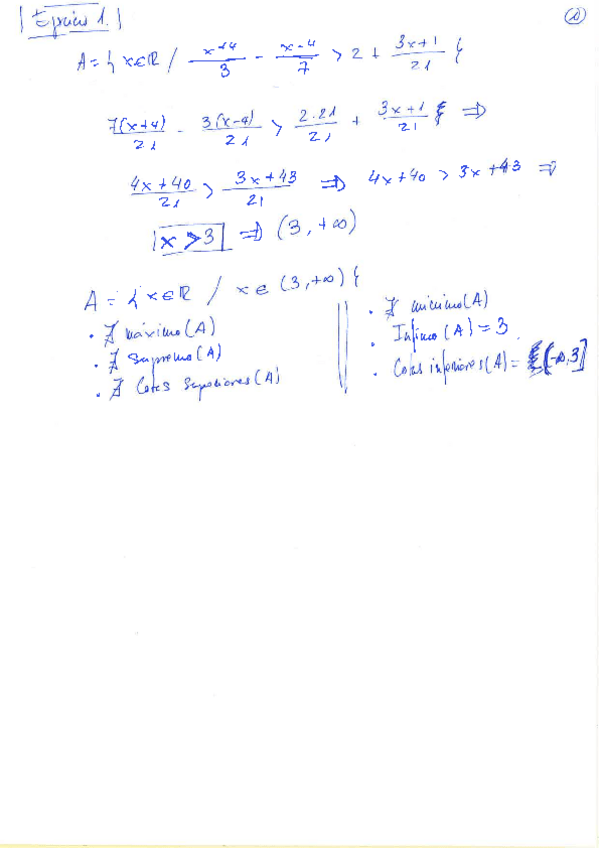 Ejercicio 1.
①
A = { x∈ℝ / (x+4)/3 - (x-4)/7 > 2 + (3x+1)/21 }
7(x+4)/21 - 3(x-4)/21 > 2·21/21 + (3x+1)/21 ⇒
(4x+40)/21 > (3x+43)/21 ⇒ 4x+40 > 3x+43 ⇒
x > 3 ⇒ (3, +∞)
A = { x∈ℝ / x∈ (3, +∞) }
· ∄ máximo (A)
· ∄ Supremo (A)
· ∄ Cotas Superiores (A)
· ∄ mínimo (A)
· Ínfimo (A) = 3
· Cotas inferiores (A) = (-∞, 3]